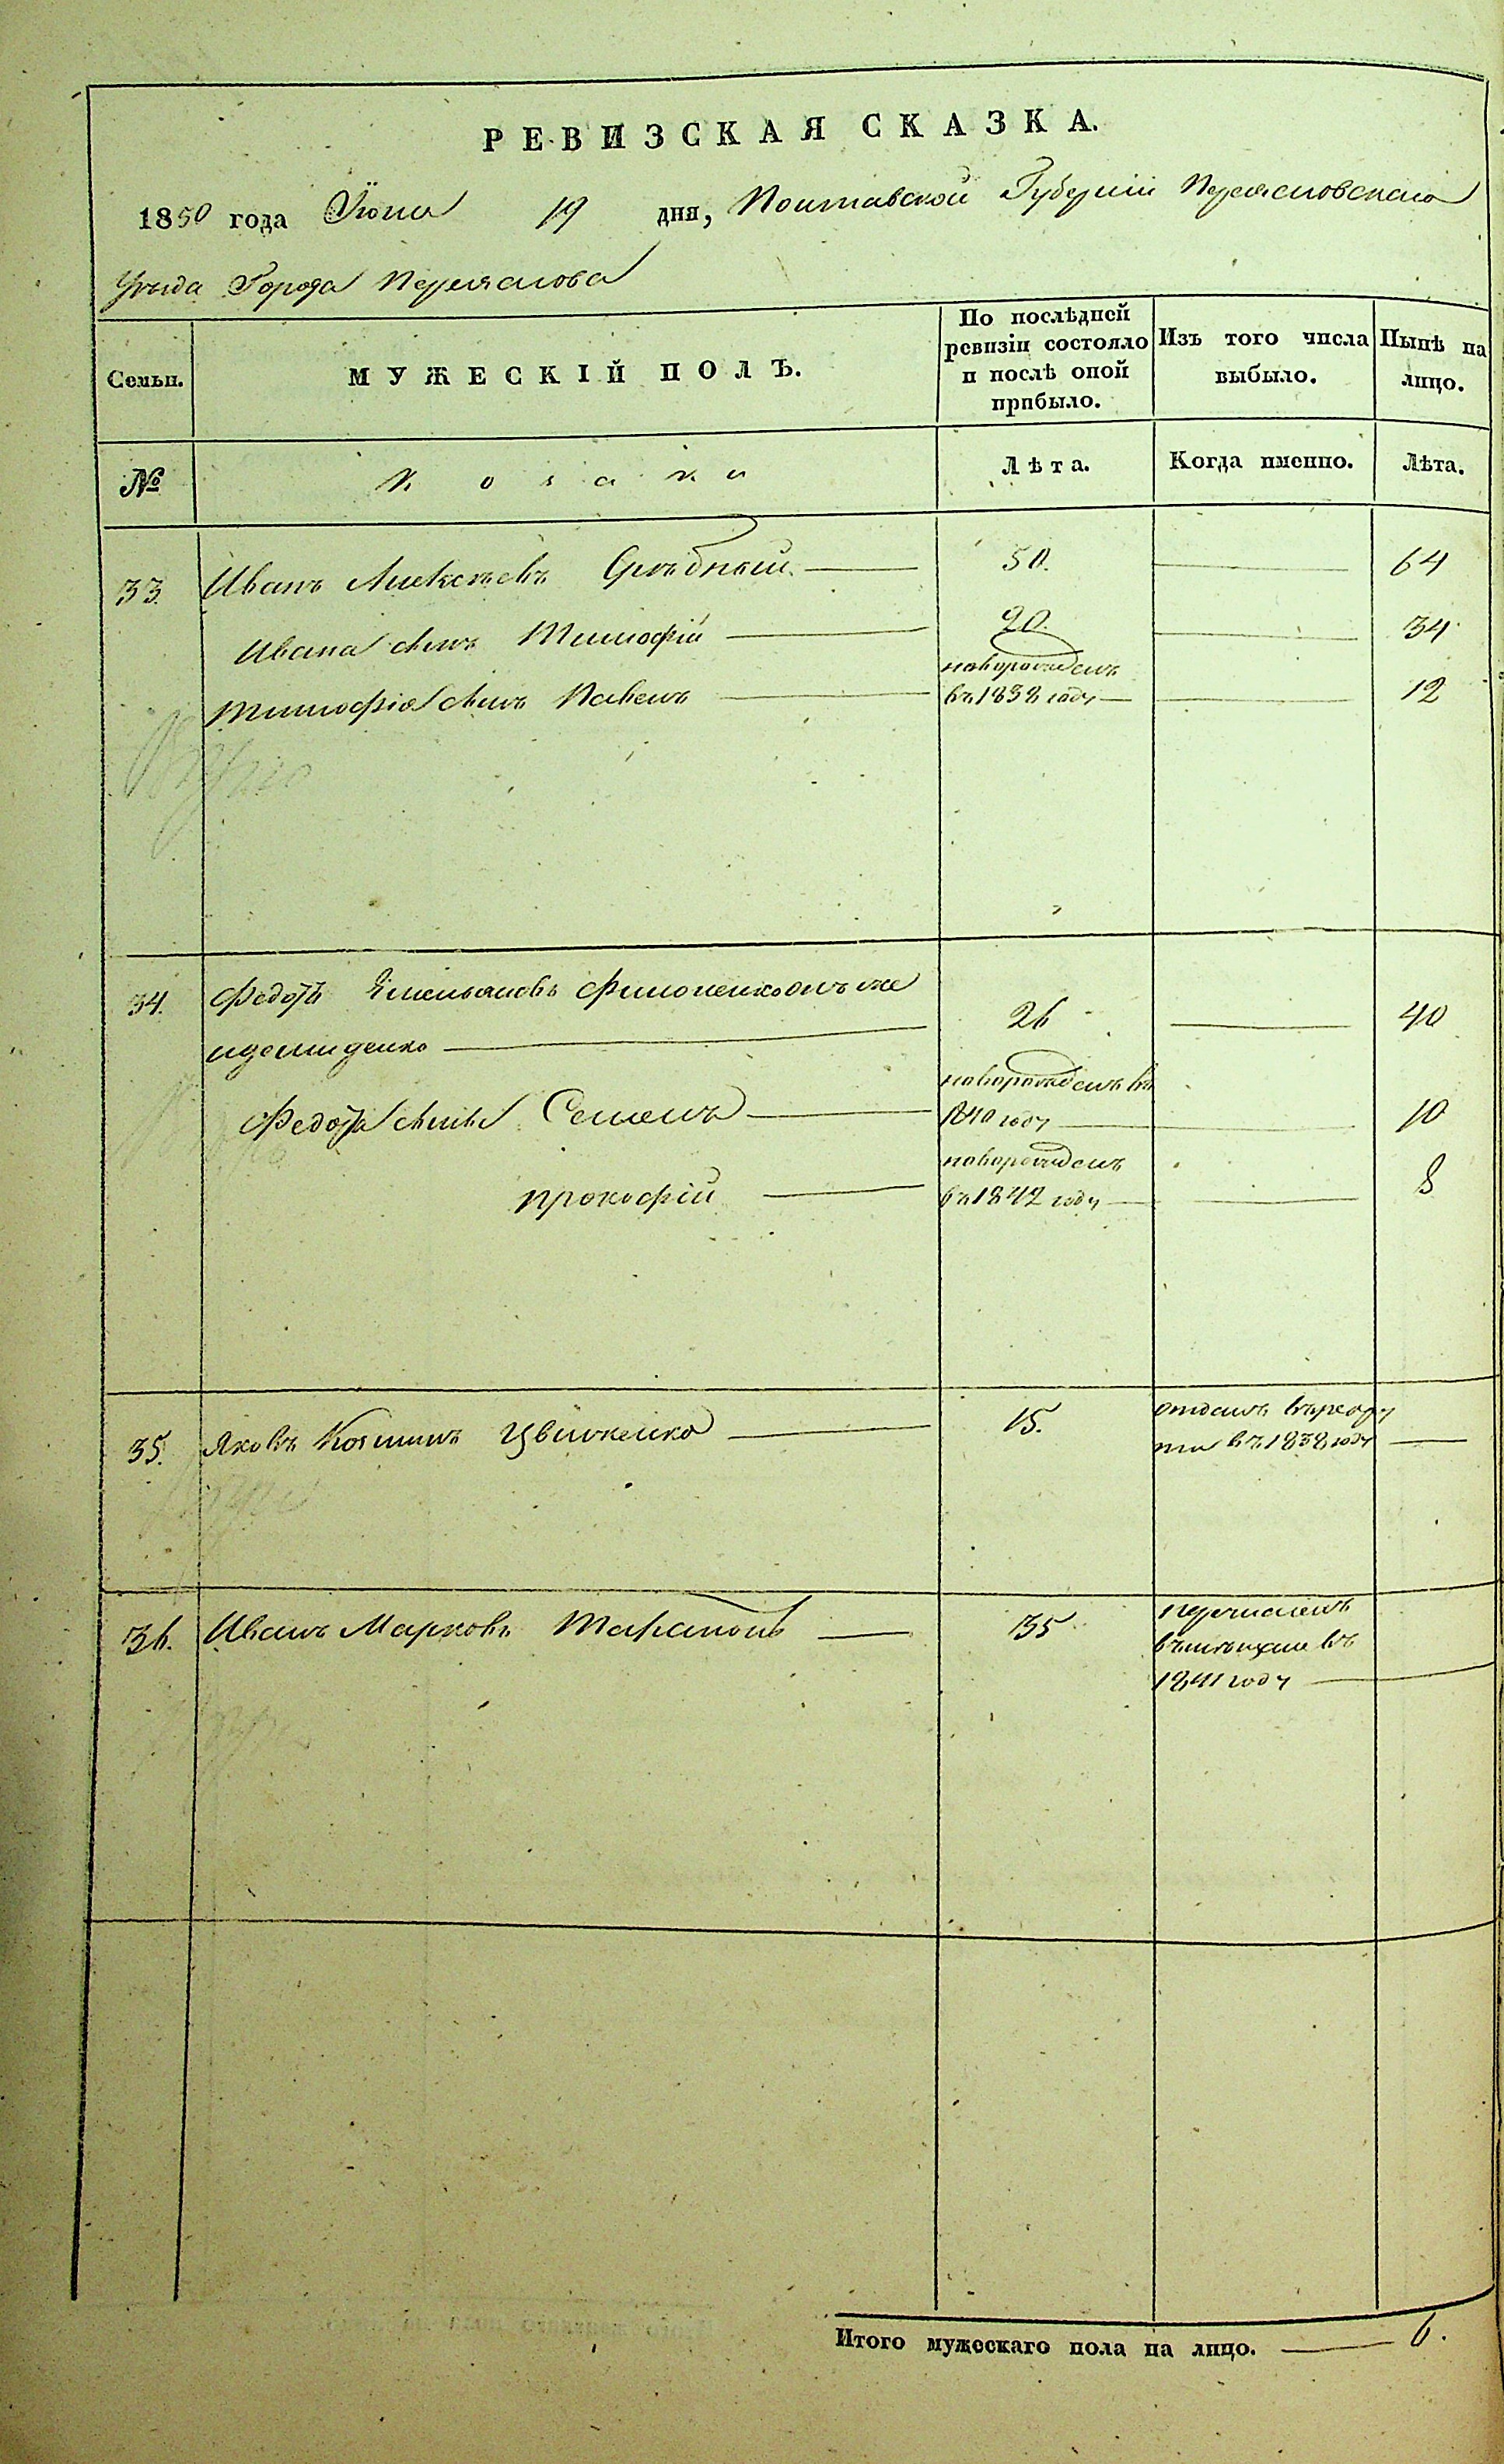 РЕВИЗСКАЯ СКАЗКА.
1850 года Іюня 19 дня, Полтавской Губерніи Переясловскаго
Уѣзда Города Переяслова
Семьи.
МУЖЕСКІЙ ПОЛЪ.
По послѣдней
ревизіи состояло
и послѣ оной
прибыло.
Изъ того числа
выбыло.
Нынѣ на
лицо.
№
Козаки
Лѣта.
Когда именно.
Лѣта.
33. Иванъ Алексѣевъ 50. 64
Ивана сынъ Тимофій 20. 34
новорожденъ
Тимофія сынъ Павелъ въ 1838 году 12
34. Федотъ Емельяновъ Филоненко онъ же
идемиденко 26 40
новорожденъ въ
Федота сынъ Семенъ 1840 году 10
новорожденъ
Прокофій въ 1842 году 8
35. Яковъ Козминъ Цвѣлкенко 15. отданъ въ рекру
ты въ 1838 году
36. Иванъ Марковъ Таранъ 35 перечисленъ
въ мѣщане въ
1841 году
Итого мужескаго пола на лицо. 6.